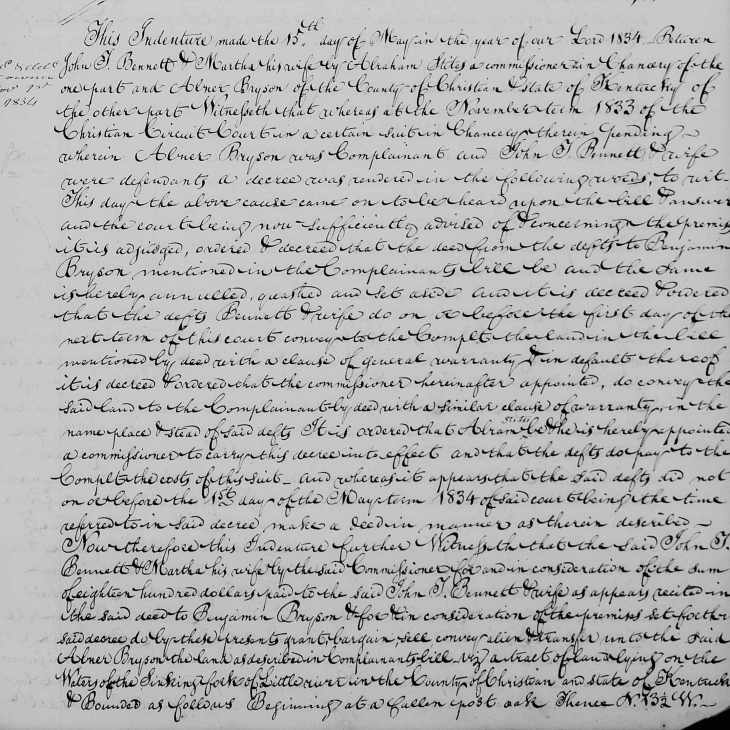 This Indenture made the 15th day of May in the year of our Lord 1834 Between
John T. Bennett & Martha his wife by Abraham Stites a commissioner in Chancery of the
one part and Abner Bryson of the County of Christian & state of Kentucky of
1834
the other part Witnesseth that whereas at the November term 1833 of the
Christian Circuit Court in a certain suit in Chancery therein pending
wherein Abner Bryson was Complainant and John T. Bennett & wife
were defendants a decree was rendered in the following words, to wit-
This day the above cause came on to be heard upon the bill & answer
and the court being now sufficiently advised of & concerning the premis
it is adjudged, ordered & decreed that the deed from the defts to Benjamin
Bryson mentioned in the Complainants bill be and the same
is hereby annulled, quashed and set aside And it is decreed & ordered
that the defts Bennett & wife do on or before the first day of the
next term of this court convey to the Complt the land in the bill
mentioned by deed with a clause of general warranty & in default thereof
it is decreed & ordered that the commissioner hereinafter appointed, do convey the
said land to the Complainant by deed with a similar clause of warranty, in the
name place & stead of said defts It is ordered that Abram Stites be & he is hereby appointed
a commissioner to carry this decree into effect and that the defts do pay to the
Complt the costs of this suit - And whereas it appears that the said defts did not
on or before the 15th day of the May term 1834 of said court being the time
referred to in said decree, make a deed in manner as therein described -
Now therefore this Indenture further Witnesseth that the said John T.
Bennett & Martha his wife by the said Commissioner for and in consideration of the sum
of eighteen hundred dollars paid to the said John T. Bennett & wife as appears recited in
the said deed to Benjamin Bryson & for & in consideration of the premises set forth
said decree do by these presents grant bargain, sell convey alien & transfer unto the said
Abner Bryson the land as described in Complainants bill viz a tract of land lying on the
Waters of the Sinking fork of Little river in the County of Christian and state of Kentucky
& Bounded as follows Beginning at a fallen post oak Thence N. 13½ W.